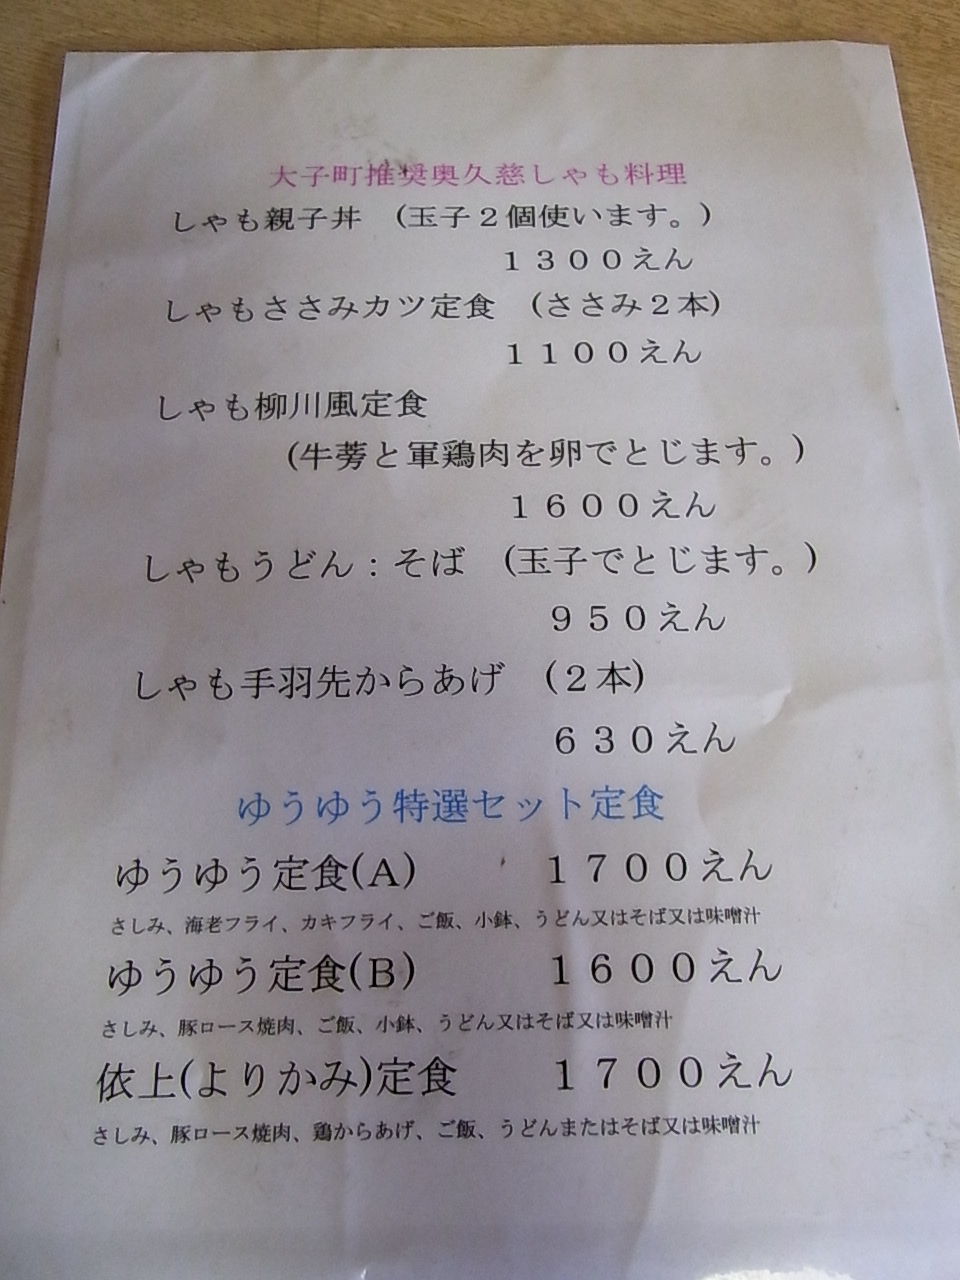 大子町推奨奥久慈しゃも料理
しゃも親子丼　(玉子２個使います。)
１３００えん
しゃもささみカツ定食　(ささみ２本)
１１００えん
しゃも柳川風定食
(牛蒡と軍鶏肉を卵でとじます。)
１６００えん
しゃもうどん：そば　(玉子でとじます。)
９５０えん
しゃも手羽先からあげ　(２本)
６３０えん
ゆうゆう特選セット定食
ゆうゆう定食(Ａ)　１７００えん
さしみ、海老フライ、カキフライ、ご飯、小鉢、うどん又はそば又は味噌汁
ゆうゆう定食(Ｂ)　１６００えん
さしみ、豚ロース焼肉、ご飯、小鉢、うどん又はそば又は味噌汁
依上(よりかみ)定食　１７００えん
さしみ、豚ロース焼肉、鶏からあげ、ご飯、うどんまたはそば又は味噌汁